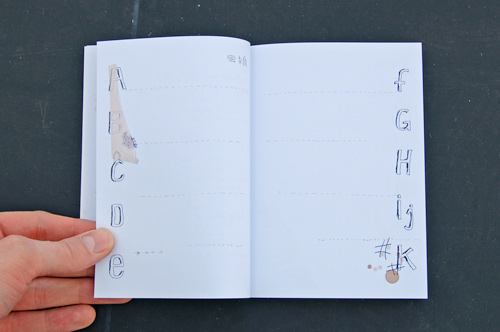 A
B
C
D
e
f
G
H
ij
#
#K